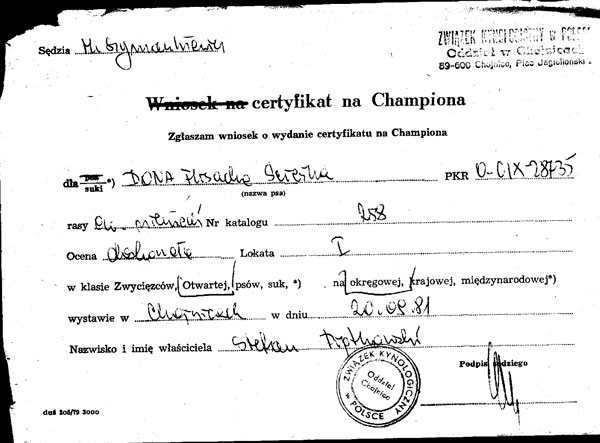 Sędzia
ZWIĄZEK KYNOLOGICZNY W POLSCE
Oddział w Chojnicach
89-600 Chojnice, Plac Jagielloński
Wniosek na certyfikat na Championa
Zgłaszam wniosek o wydanie certyfikatu na Championa
dla psa suki *) DONA PKR 0-CIX-28735
(nazwa psa)
rasy Nr katalogu 258
Ocena doskonała Lokata I
w klasie Zwycięzców, Otwartej, psów, suk, *) na okręgowej, krajowej, międzynarodowej*)
wystawie w Chojnicach w dniu 20.09.81
Nazwisko i imię właściciela Stefan
Podpis sędziego
ZWIĄZEK KYNOLOGICZNY w POLSCE
Oddział
Chojnice
duś 308/79 3000